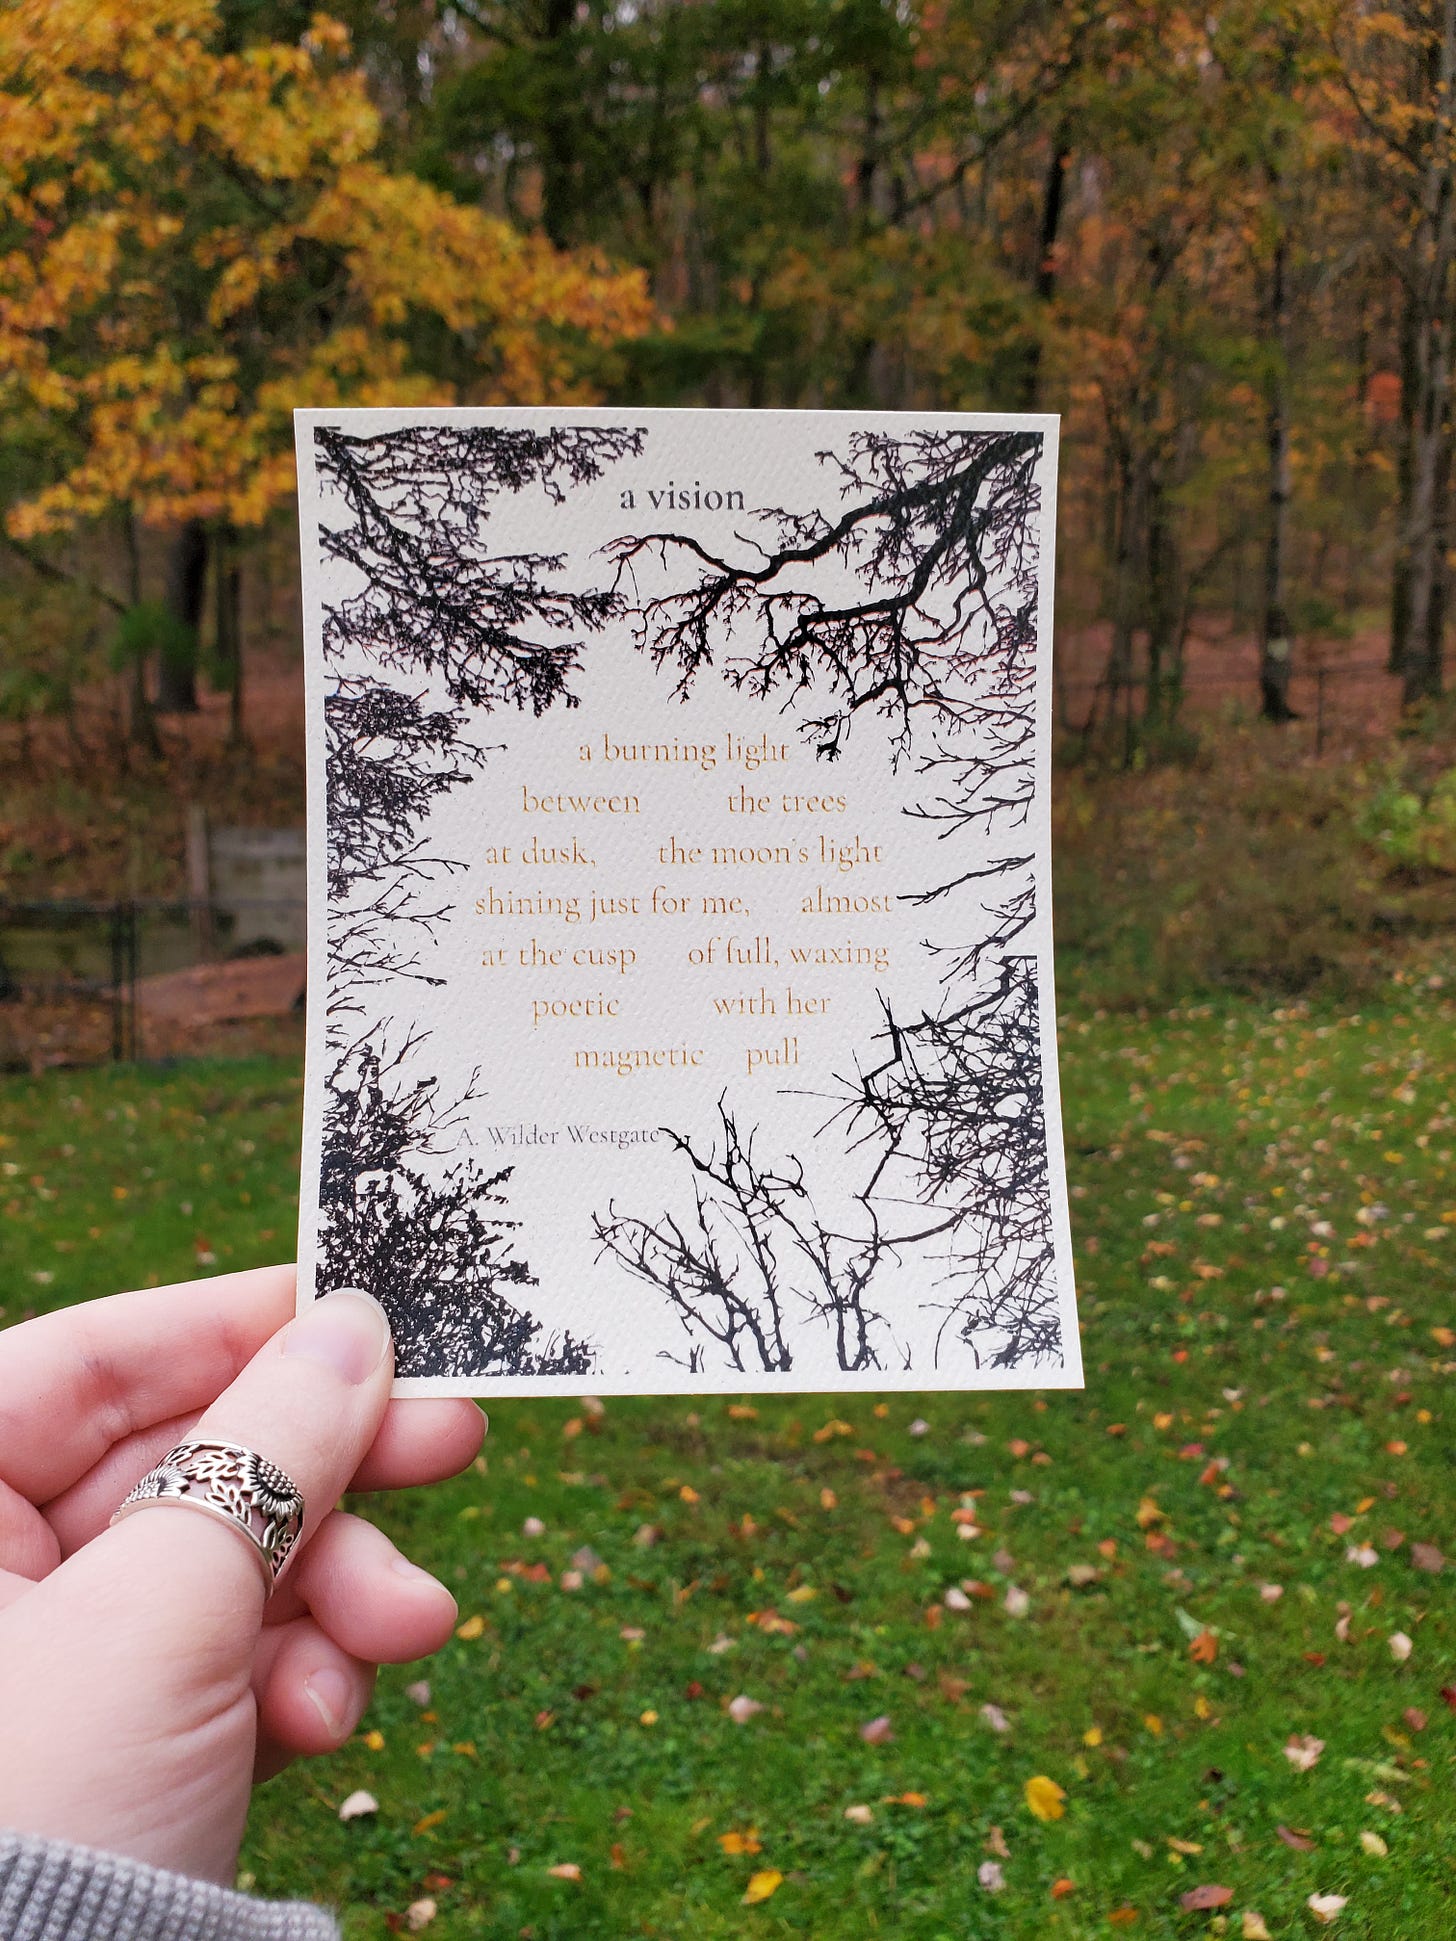 a vision
a burning light
between the trees
at dusk, the moon's light
shining just for me, almost
at the cusp of full, waxing
poetic with her
magnetic pull
A. Wilder Westgate